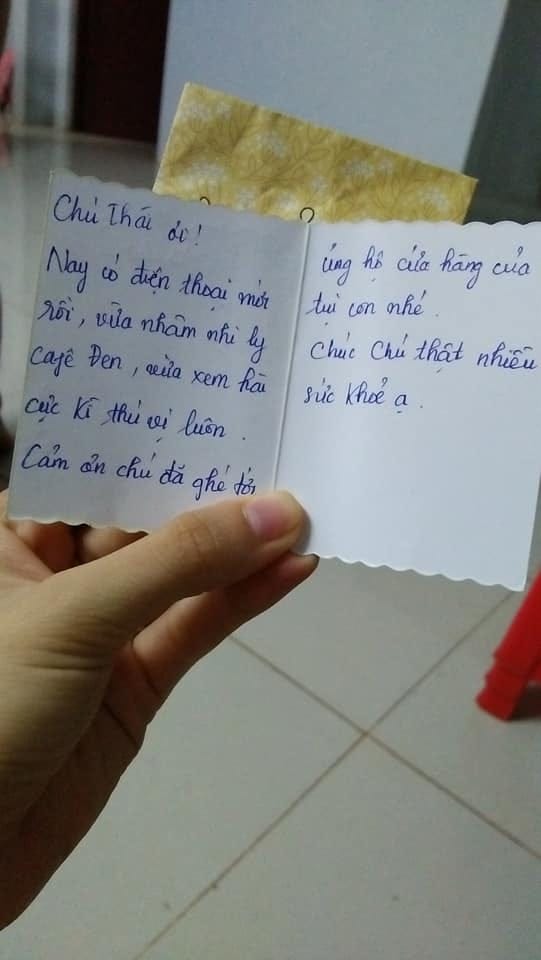 Chú Thái ơi!
Nay có điện thoại mới
rồi, vừa nhâm nhi ly
cafê Đen, vừa xem hài
cực kì thú vị luôn.
Cảm ơn chú đã ghé tới
ủng hộ cửa hàng của
tụi con nhé.
Chúc Chú thật nhiều
sức khoẻ ạ.